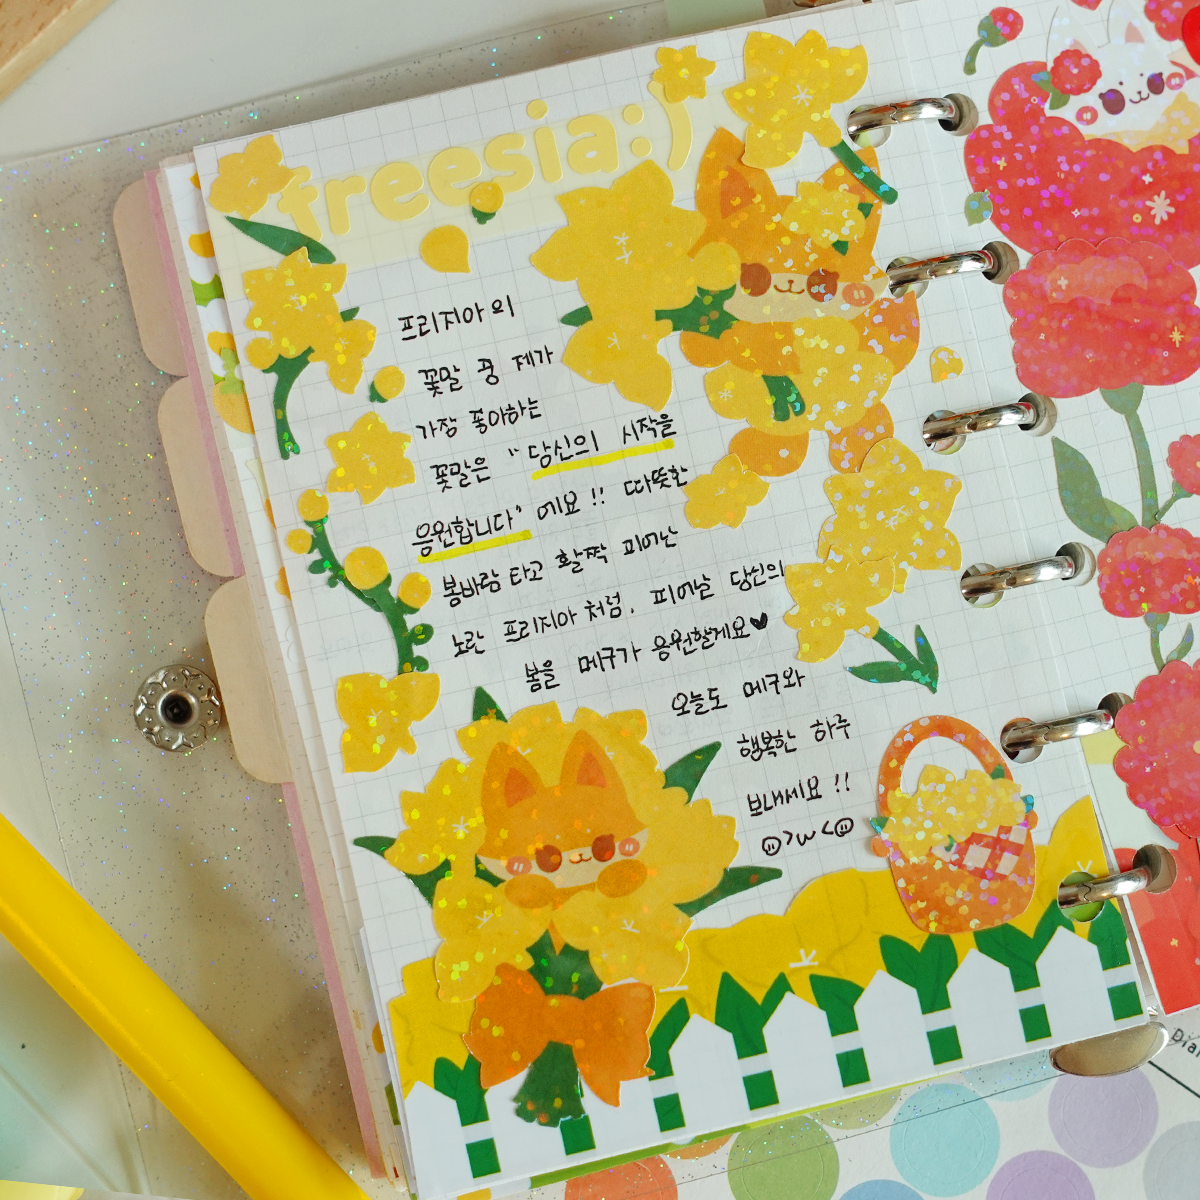 freesia:)
프리지아의
꽃말 중 제가
가장 좋아하는
꽃말은 "당신의 시작을
응원합니다" 에요!! 따뜻한
봄바람 타고 활짝 피어난
노란 프리지아처럼, 피어날 당신의
봄을 메구가 응원할게요♥
오늘도 메구와
행복한 하루
보내세요!!